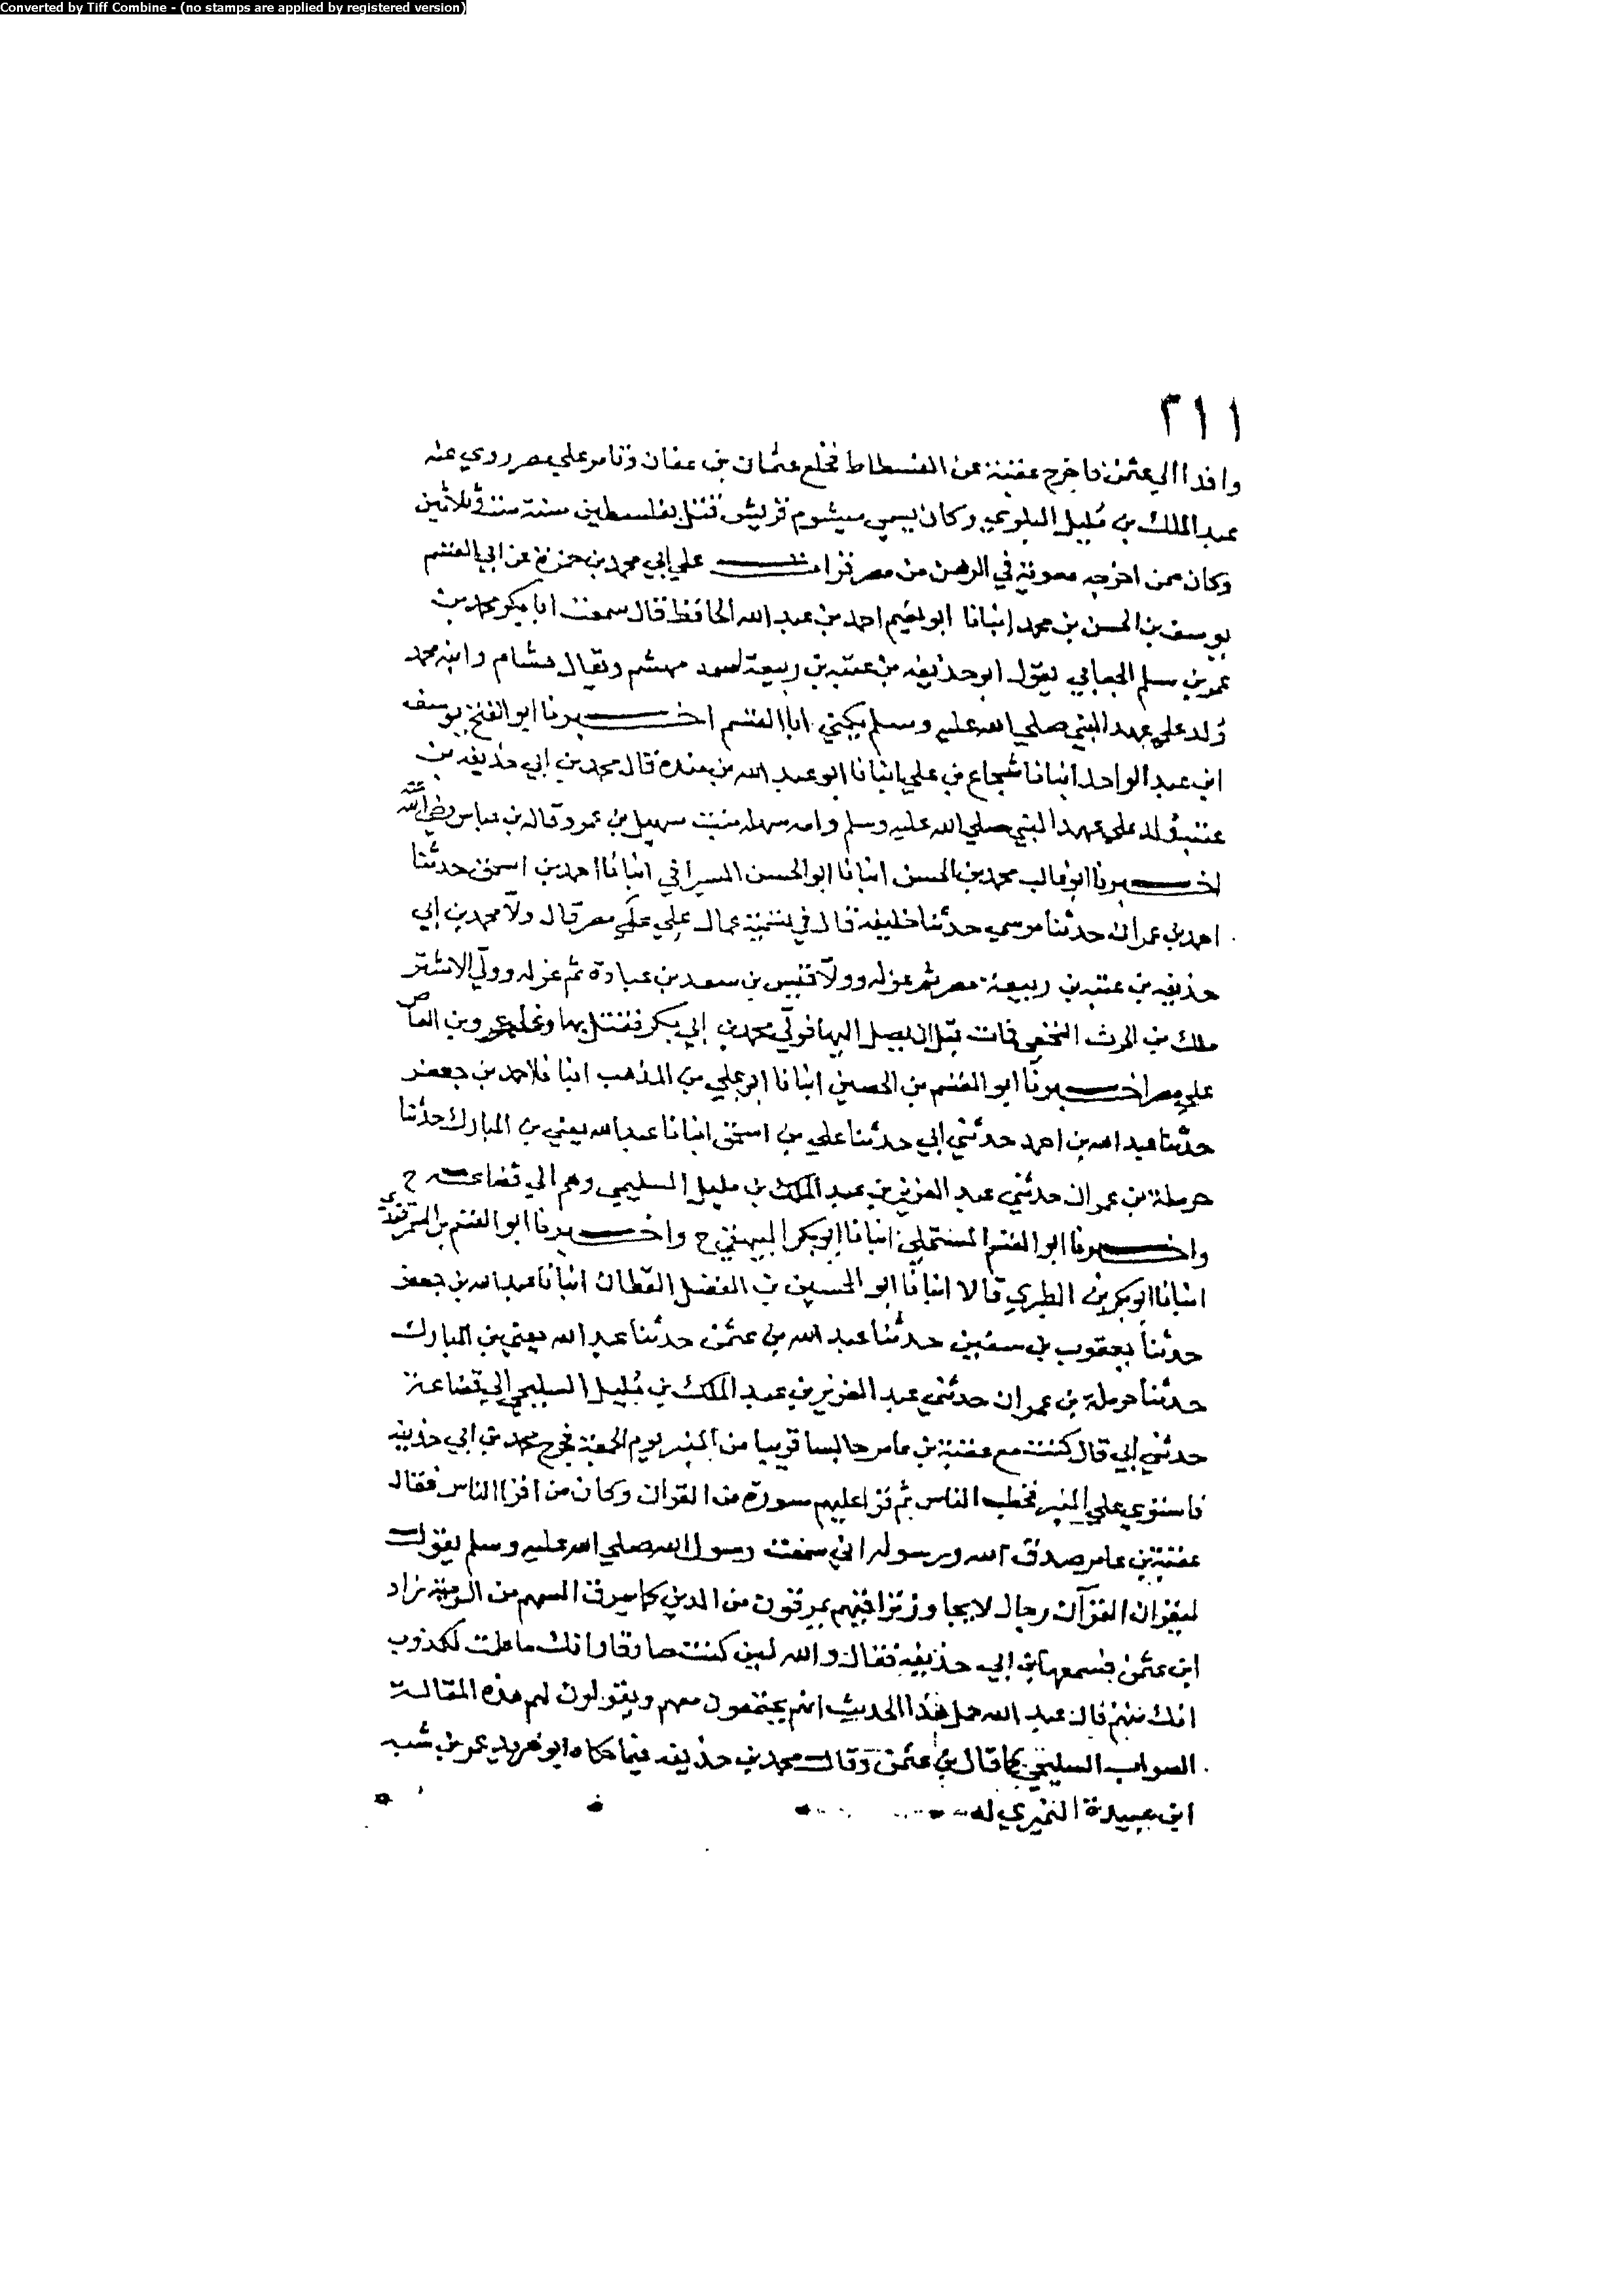 Converted by Tiff Combine - (no stamps are applied by registered version)
٢١١
وافدا الي عثمن فاخرج عقبة عن الفسطاط فخلع عثمان بن عفان وتامر علي مصر روي عنه
عبد الملك بن مُليل البلوي وكان يسمي ميشوم قريش قتل بفلسطين سنة ست وثلاثين
وكان ممن اخرجه معوية في الرهن من مصر قرات علي ابي محمد بن حمزة عن ابي القسم
يوسف بن الحسن بن محمد انبانا ابو نعيم احمد بن عبد الله الحافظ قال سمعت ابا بكر محمد بن
عمر بن سلم الجعابي يقول ابو حذيفه بن عتبه بن ربيعة اسمه مهشم ويقال هشام وابنه محمد
وُلد علي عهد النبي صلي الله عليه وسلم يكني ابا القسم اخبرنا ابو الفتح يوسف
ابن عبد الواحد انبانا شجاع بن علي انبانا ابو عبد الله بن منده قال محمد بن ابي حذيفه بن
عتبة ولد علي عهد النبي صلي الله عليه وسلم وامه سهله بنت سهيل بن عمرو قاله بن عباس رضي الله عنه
اخبرنا ابو غالب محمد بن الحسن انبانا ابو الحسن السيرافي انبانا احمد بن اسحق حدثنا
احمد بن عمران حدثنا موسي حدثنا خليفه قال في تسمية عمال علي علي مصر قال ولا محمد بن ابي
حذيفه بن عتبه بن ربيعة مصر ثم عزله وولا قيس بن سعد بن عبادة ثم عزله وولي الاشتر
ملك بن الحرث النخعي فمات قبل ان يصل اليها فولي محمد بن ابي بكر فقتل بها وغلب عمرو بن العاص
علي مصر اخبرنا ابو القسم بن الحصين انبانا ابو علي بن المذهب انبانا احمد بن جعفر
حدثنا عبد الله بن احمد حدثني ابي حدثنا علي بن اسحق انبانا عبد الله يعني بن المبارك حدثنا
حرملة بن عمران حدثني عبد العزيز بن عبد الملك بن مليل السليحي وهم الي قضاعه ح
واخبرنا ابو القسم المستملي انبانا ابو بكر البيهقي ح واخبرنا ابو القسم بن السمرقندي
انبانا ابو بكر بن الطبري قالا انبانا ابو الحسين بن الفضل القطان انبانا عبد الله بن جعفر
حدثنا يعقوب بن سفين حدثنا عبد الله بن عثمن حدثنا عبد الله يعني بن المبارك
حدثنا حرملة بن عمران حدثني عبد العزيز بن عبد الملك بن مُليل السليحي الي قضاعة
حدثني ابي قال كنت مع عقبة بن عامر جالسا قريبا من المنبر يوم الجمعة فخرج محمد بن ابي حذيفه
فاستوي علي المنبر فخطب الناس ثم قرا عليهم سورة من القران وكان من اقرا الناس فقال
عقبة بن عامر صدق الله ورسوله اني سمعت رسول الله صلي الله عليه وسلم يقول
ليقران القرآن رجال لا يجاوز تراقيهم يمرقون من الدين كما يمرق السهم من الرمية زاد
ابن عثمن فسمعها بن ابي حذيفه فقال والله لين كنت صادقا وانك ما علمت لكذوب
انك منهم قال عبد الله حمل هذا الحديث انهم يجتمعون معهم ويقولون لهم هذه المقالة
الصواب السليحي كما قال بن عثمن وقال محمد بن حذيفه فيما حكاه ابو زيد عمر بن شبه
ابن عبيدة النميري له